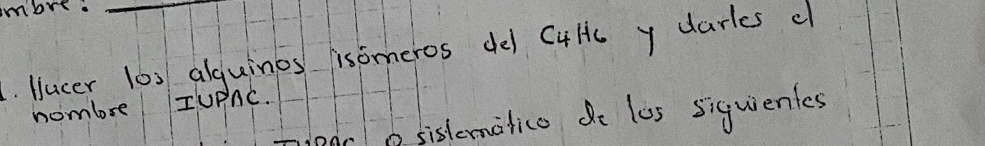 mbre:
1. Hacer los alquinos isómeros del C4H6 y darles el
nombre IUPAC.
IUPAC o sistemático de los siguientes